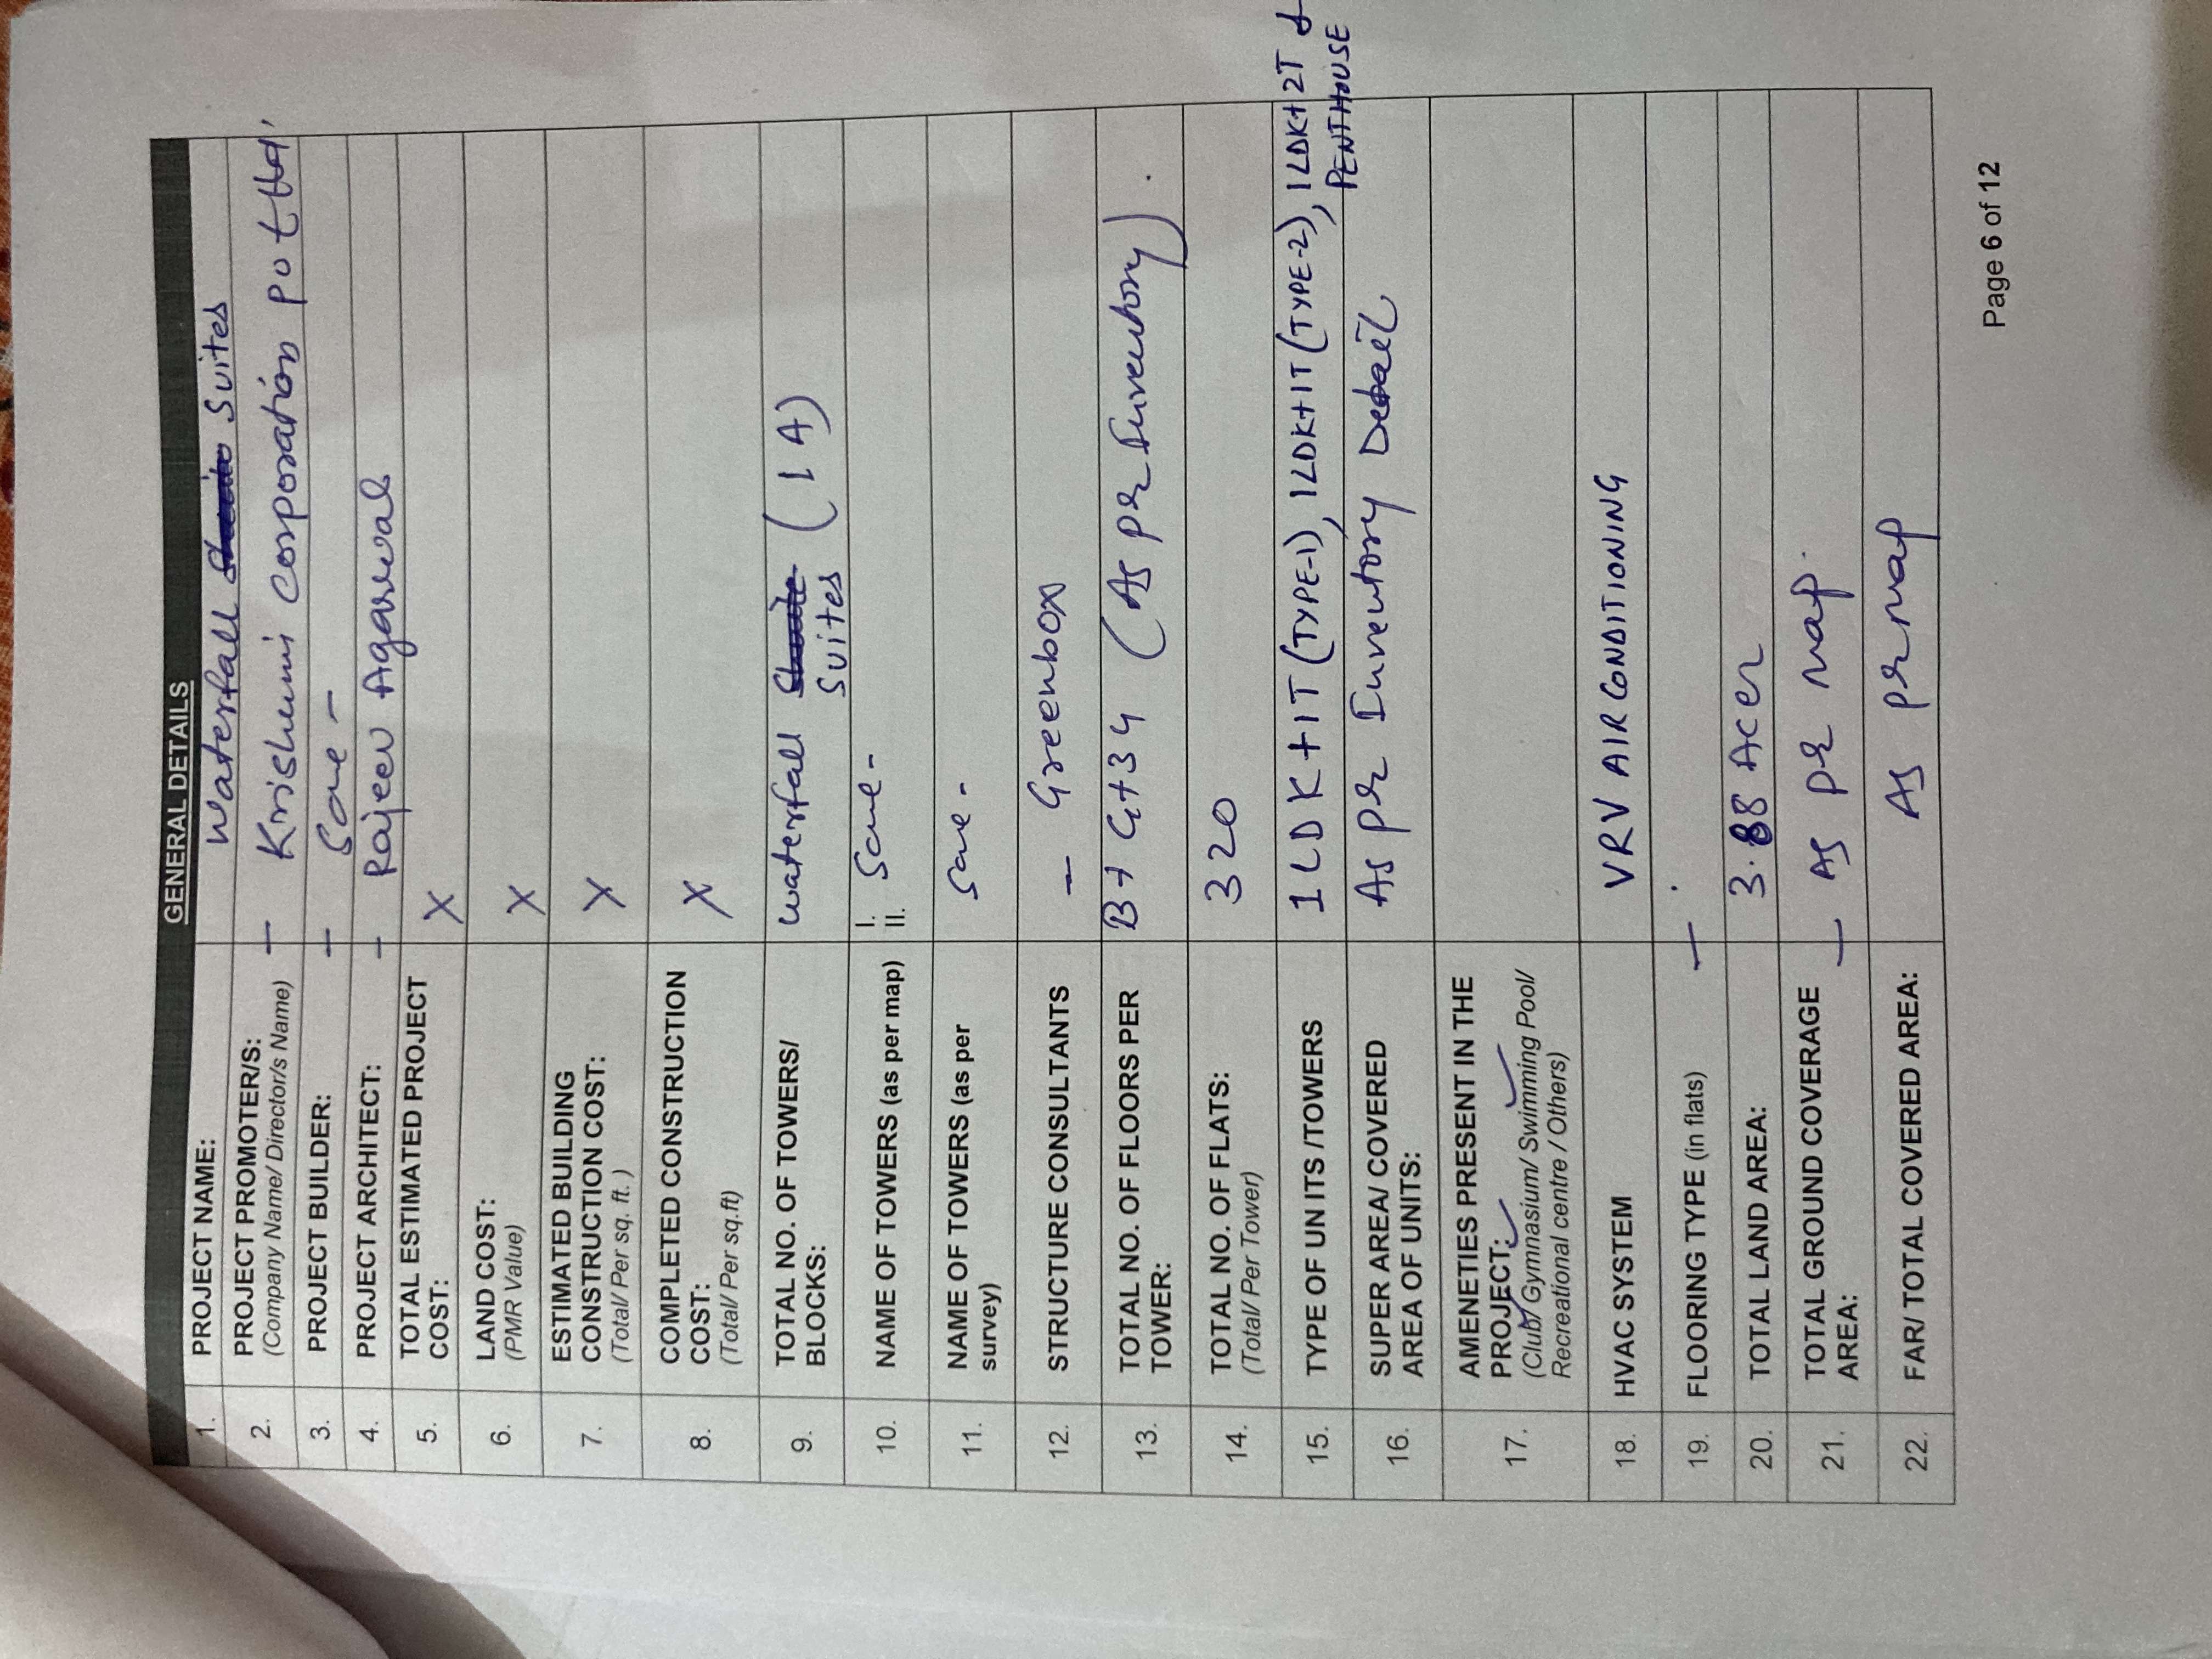 GENERAL DETAILS
1. PROJECT NAME: Waterfall Suites
2. PROJECT PROMOTER/S: - Krishumi Corporation
(Company Name/ Director/s Name)
3. PROJECT BUILDER: - Same -
4. PROJECT ARCHITECT: - Rajeev Agarwal
5. TOTAL ESTIMATED PROJECT X
COST:
6. LAND COST: X
(PMR Value)
7. ESTIMATED BUILDING X
CONSTRUCTION COST:
(Total/ Per sq. ft. )
8. COMPLETED CONSTRUCTION X
COST:
(Total/ Per sq.ft)
9. TOTAL NO. OF TOWERS/ waterfall (1A)
BLOCKS: Suites
10. NAME OF TOWERS (as per map) I. Same -
II.
11. NAME OF TOWERS (as per Same -
survey)
12. STRUCTURE CONSULTANTS - Greenbox
13. TOTAL NO. OF FLOORS PER B+G+34 (As per Inventory).
TOWER:
14. TOTAL NO. OF FLATS: 320
(Total/ Per Tower)
15. TYPE OF UN ITS /TOWERS 1LDK+1T (TYPE-1), 1LDK+1T (TYPE-2), 1LDK+2T &
PENTHOUSE
16. SUPER AREA/ COVERED As per Inventory Detail
AREA OF UNITS:
17. AMENETIES PRESENT IN THE
PROJECT:
(Club/ Gymnasium/ Swimming Pool/
Recreational centre / Others)
18. HVAC SYSTEM VRV AIR CONDITIONING
19. FLOORING TYPE (in flats) -
20. TOTAL LAND AREA: 3.88 Acer
21. TOTAL GROUND COVERAGE - As per map.
AREA:
22. FAR/ TOTAL COVERED AREA: As per map
Page 6 of 12